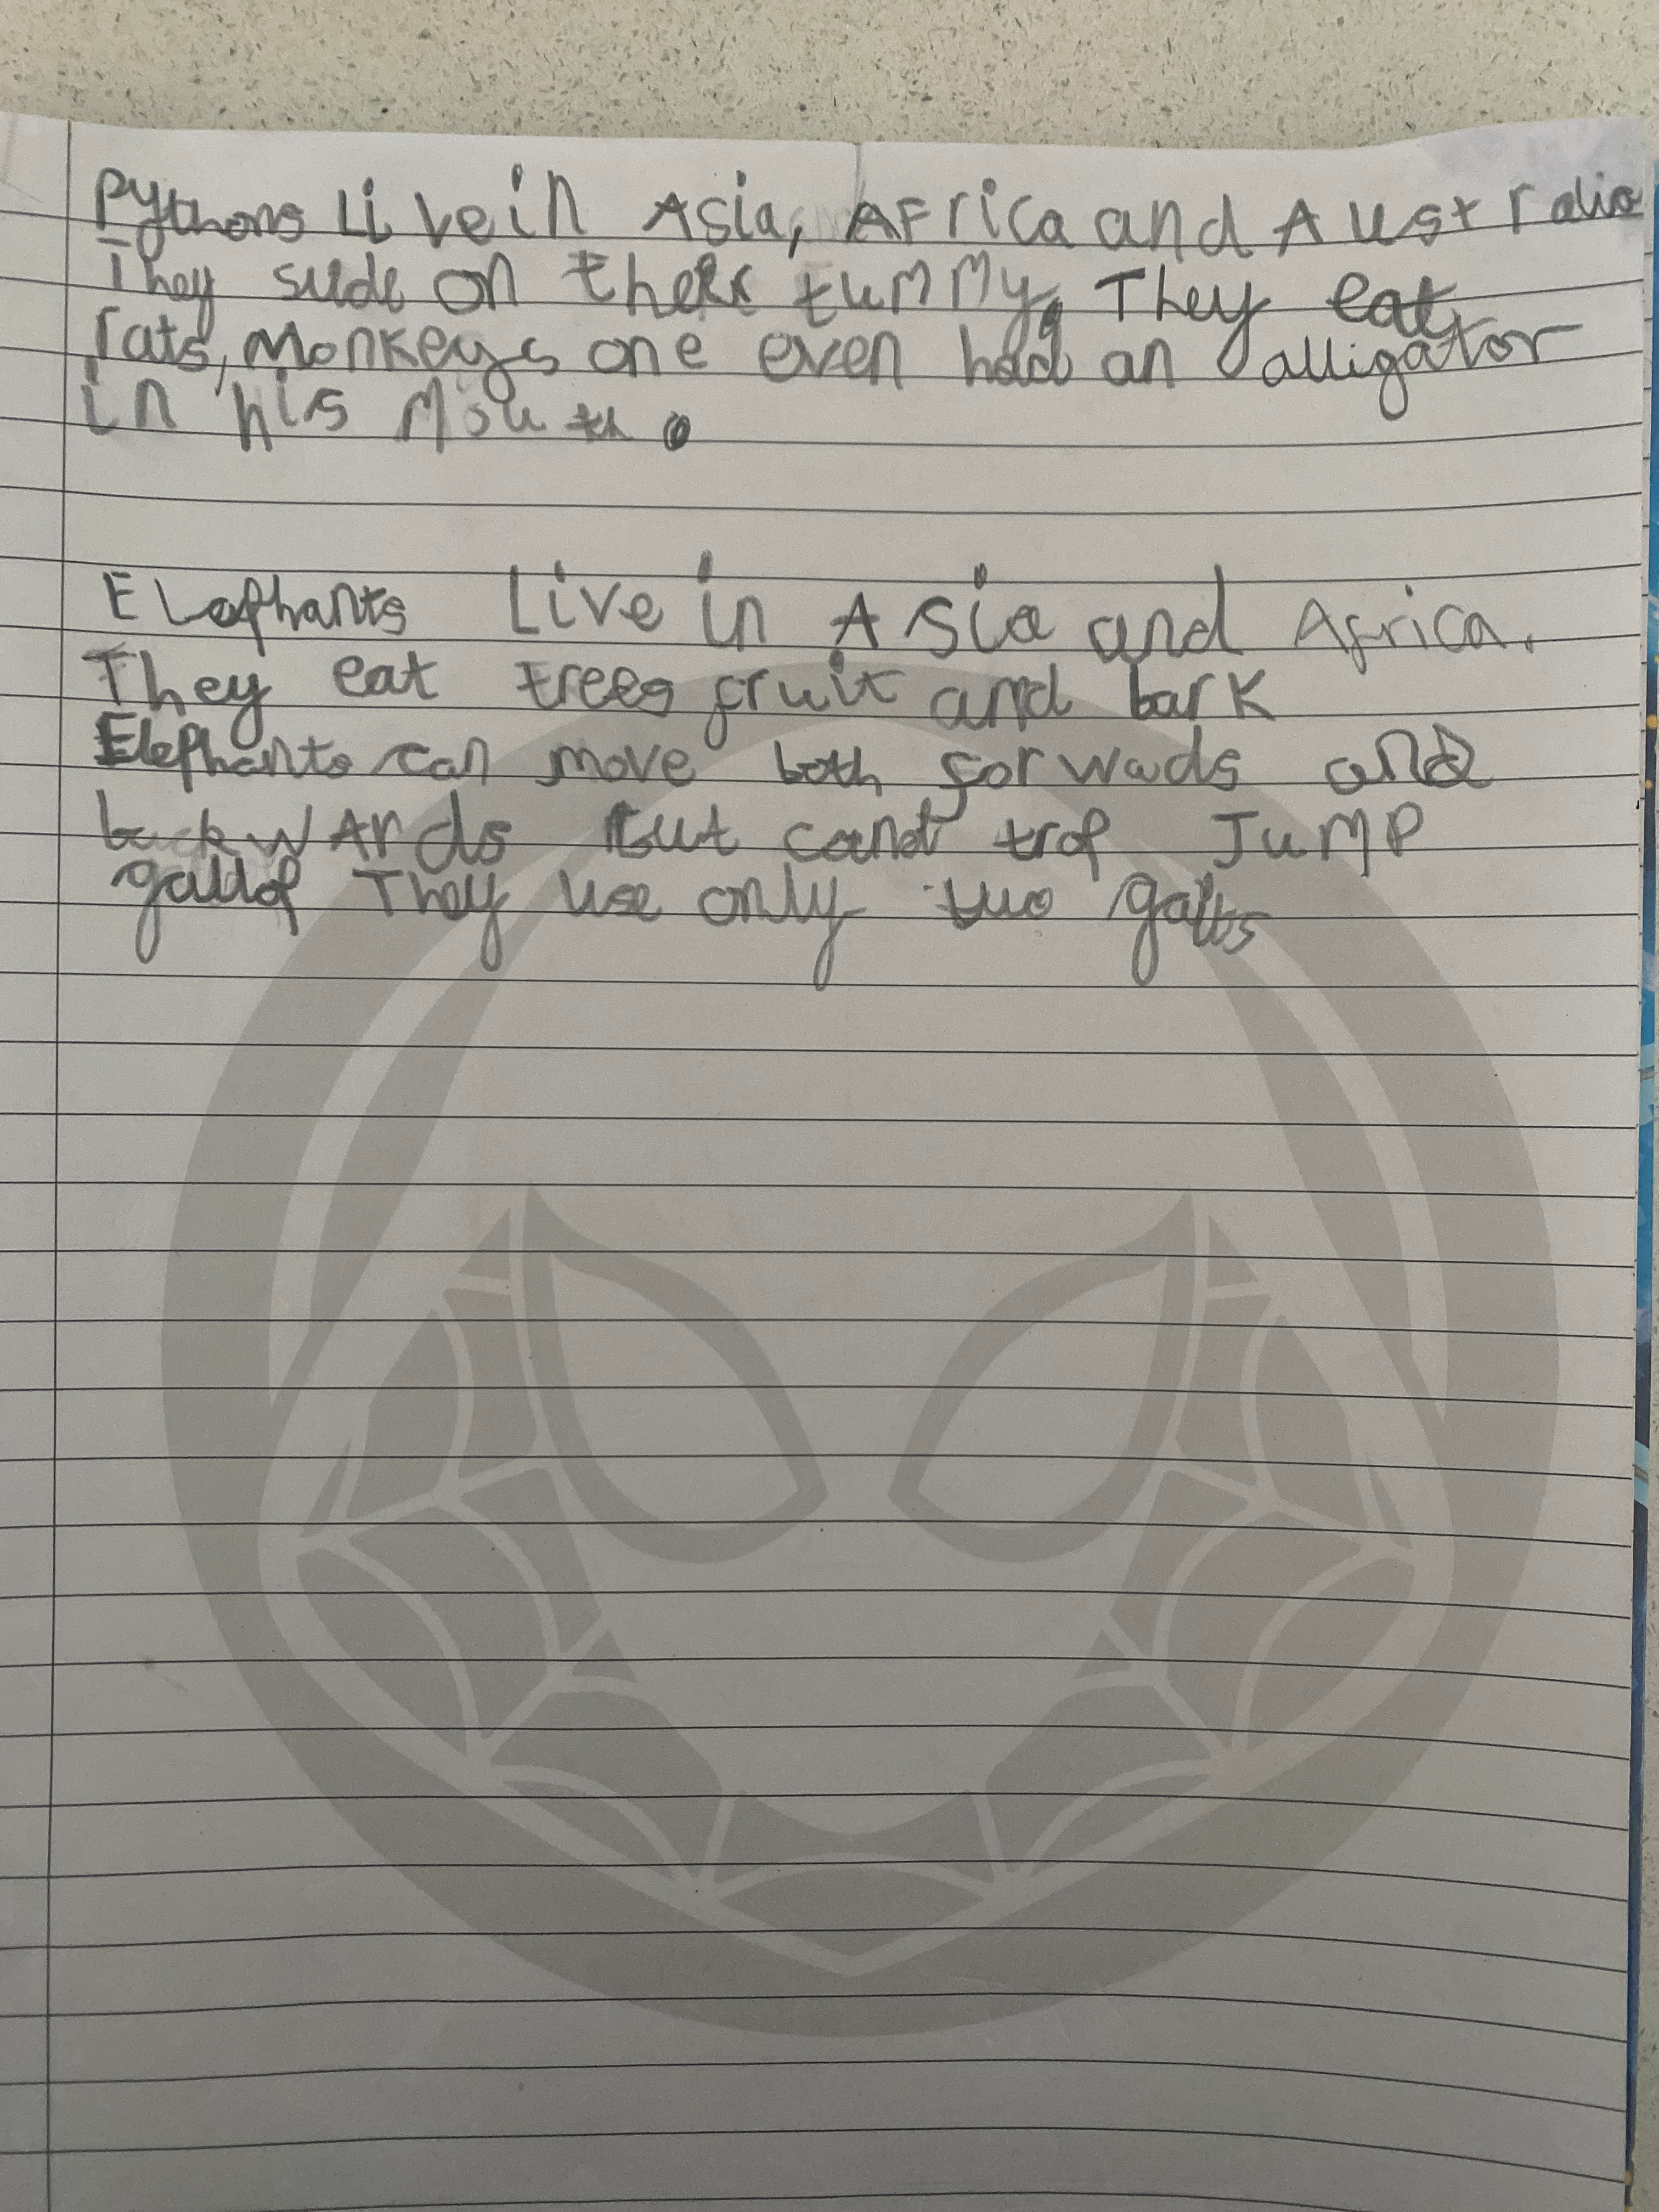 Pythons Live in Asia, AFrica and Australia
They slide on their tummy. They eat
rats, Monkeys one even had an alligator
in his Mouth.
Elephants Live in Asia and Africa.
They eat trees fruit and bark
Elephants can move both forwads and
backwARds But cant trop JumP
gallop They use only two gaits